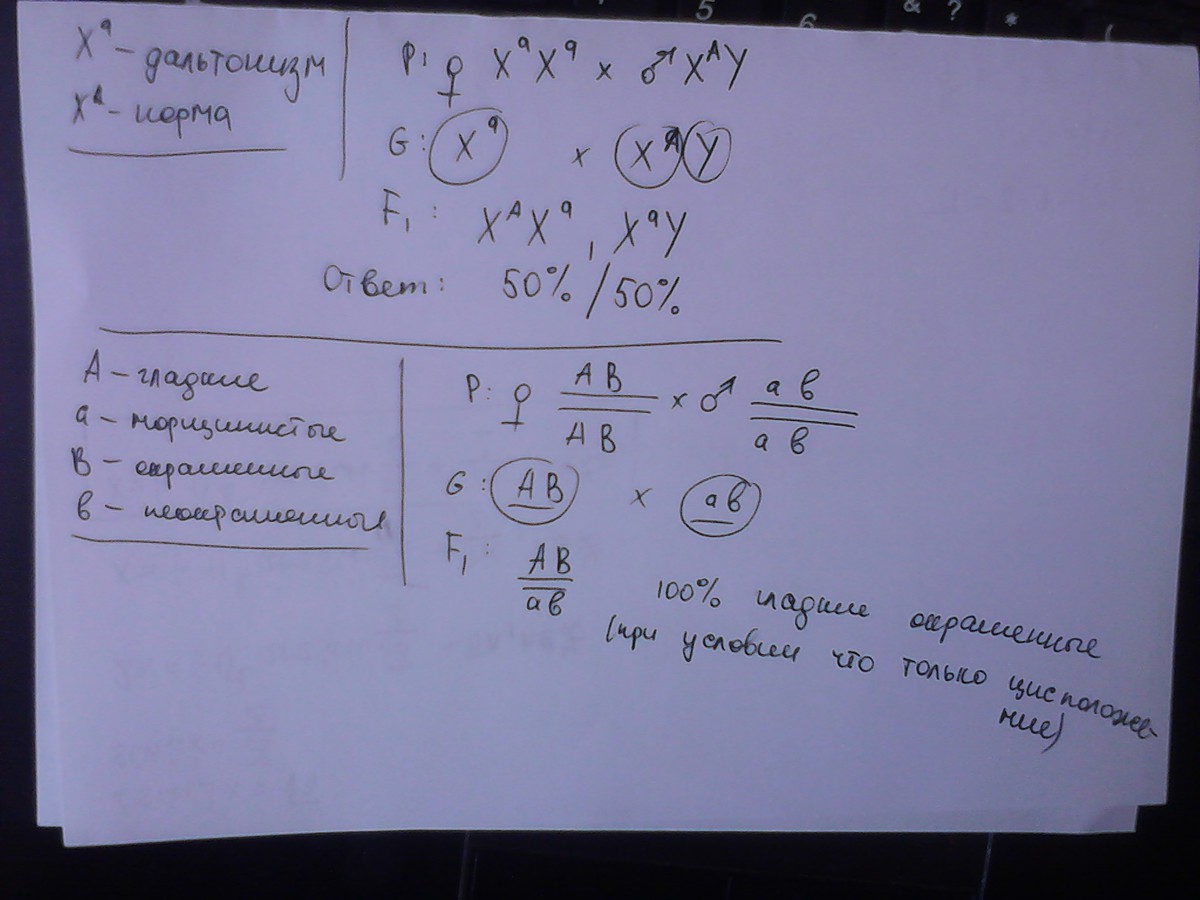 5 6 & ? * (
Xᵃ – дальтонизм
Xᴬ – норма
P: ♀ XᵃXᵃ × ♂ XᴬY
G: Xᵃ × Xᴬ Y
F₁: XᴬXᵃ, XᵃY
Ответ: 50% / 50%
A – гладкие
a – морщинистые
B – окрашенные
в – неокрашенные
P: ♀ AB × ♂ aв
AB aв
G: AB × aв
F₁: AB
aв
100% гладкие окрашенные
(при условии что только цисположе-
ние)